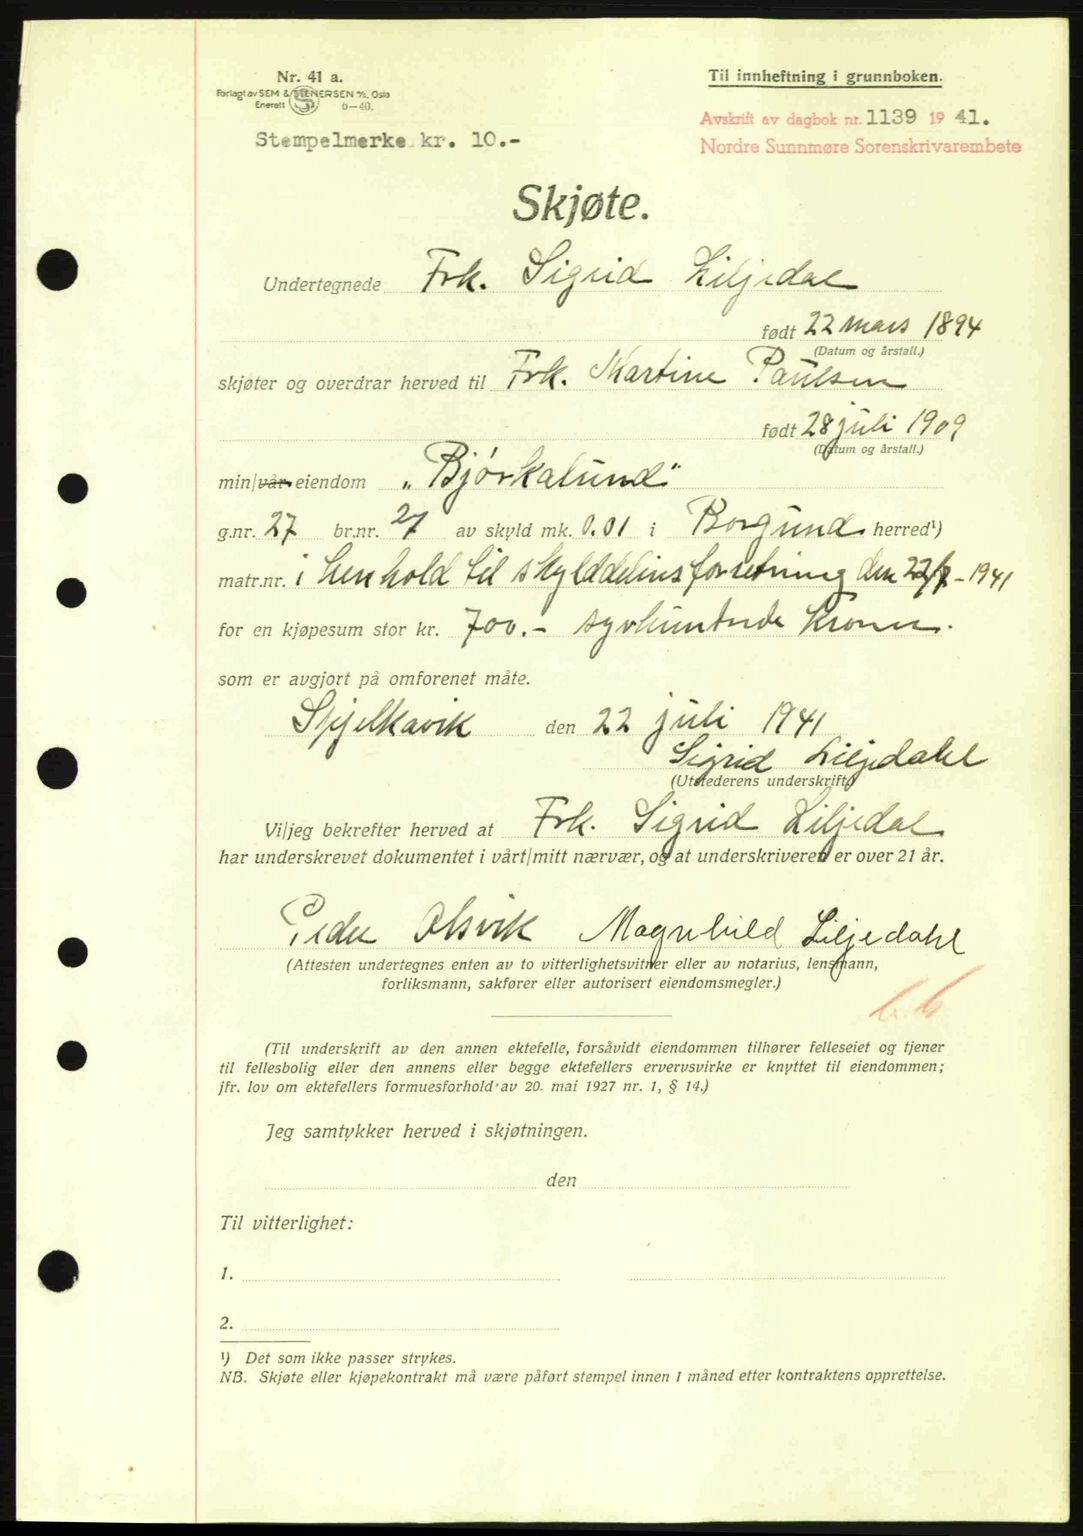 Nr. 41 a.
Forlagt av SEM & STENERSEN A/S, Oslo
Enerett 6-40.
Stempelmerke kr. 10.-
Til innheftning i grunnboken.
Avskrift av dagbok nr. 1139 1941.
Nordre Sunnmøre Sorenskrivarembete
Skjøte.
Undertegnede Frk. Sigrid Liljedal
født 22 mars 1894
(Datum og årstall.)
skjøter og overdrar herved til Frk. Martine Paulsen
født 28 juli 1909
(Datum og årstall.)
min/vår eiendom „Bjørkalund"
g.nr. 27 br.nr. 27 av skyld mk. 0.01 i Borgund herred¹)
matr.nr. i henhold til skylddelinsforretning den 22/7-1941
for en kjøpesum stor kr. 700.- syvhuntrde Kroner.
som er avgjort på omforenet måte.
Spjelkavik den 22 juli 1941
Sigrid Liljedahl
(Utstederens underskrift)
Vi/jeg bekrefter herved at Frk. Sigrid Liljedal
har underskrevet dokumentet i vårt/mitt nærvær, og at underskriveren er over 21 år.
Peder Olsvik Magnhild Liljedahl
(Attesten undertegnes enten av to vitterlighetsvitner eller av notarius, lensmann,
forliksmann, sakfører eller autorisert eiendomsmegler.)
(Til underskrift av den annen ektefelle, forsåvidt eiendommen tilhører felleseiet og tjener
til fellesbolig eller den annens eller begge ektefellers ervervsvirke er knyttet til eiendommen;
jfr. lov om ektefellers formuesforhold av 20. mai 1927 nr. 1, § 14.)
Jeg samtykker herved i skjøtningen.
den
Til vitterlighet:
1.
2.
¹) Det som ikke passer strykes.
NB. Skjøte eller kjøpekontrakt må være påført stempel innen 1 måned etter kontraktens opprettelse.